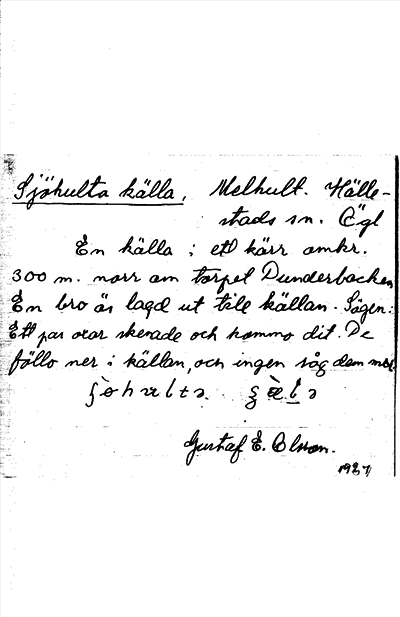 Sjöhulta källa, Melhult. Hälle-
stads sn. Ögl
En källa i ett kärr omkr.
300 m. norr om torpet Dunderbacken
En bro är lagd ut till källan. Sägen:
Ett par oxar skenade och kommo dit. De
föllo ner i källan, och ingen såg dem mer.
Gustaf E. Olsson.
1927